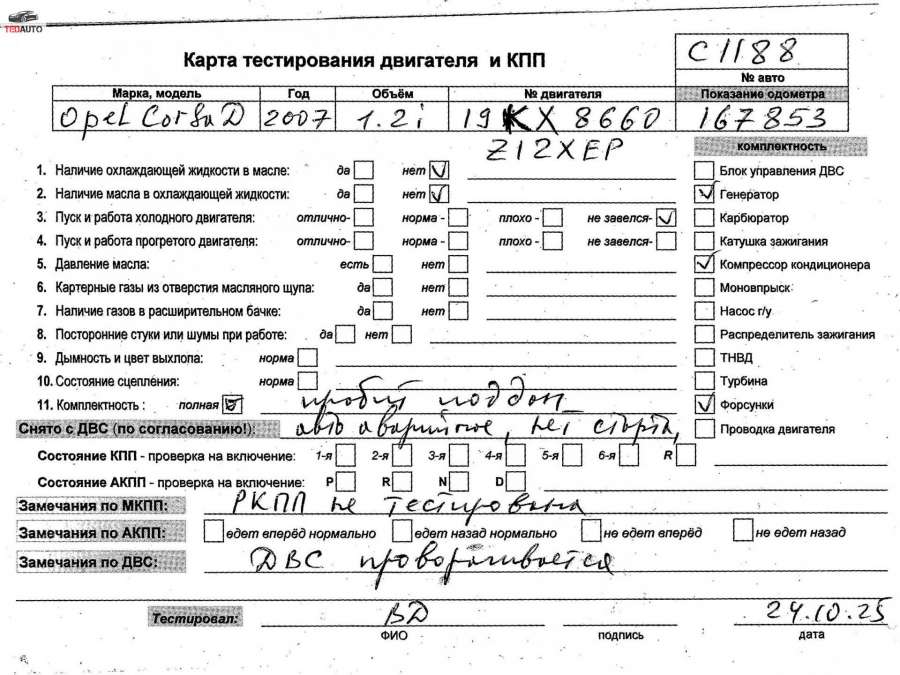 TEDAUTO
Карта тестирования двигателя и КПП
C1188
№ авто
Марка, модель Год Объём № двигателя Показание одометра
Opel Corsa D 2007 1.2i 19KX8660 167853
Z12XEP
комплектность
1. Наличие охлаждающей жидкости в масле: да нет Блок управления ДВС
2. Наличие масла в охлаждающей жидкости: да нет Генератор
3. Пуск и работа холодного двигателя: отлично- норма - плохо - не завелся- Карбюратор
4. Пуск и работа прогретого двигателя: отлично- норма - плохо - не завелся- Катушка зажигания
5. Давление масла: есть нет Компрессор кондиционера
6. Картерные газы из отверстия масляного щупа: да нет Моновпрыск
7. Наличие газов в расширительном бачке: да нет Насос г/у
8. Посторонние стуки или шумы при работе: да нет Распределитель зажигания
9. Дымность и цвет выхлопа: норма ТНВД
10. Состояние сцепления: норма Турбина
11. Комплектность : полная пробит поддон Форсунки
Снято с ДВС (по согласованию!): авто аварийное, нет старта, Проводка двигателя
Состояние КПП - проверка на включение: 1-я 2-я 3-я 4-я 5-я 6-я R
Состояние АКПП - проверка на включение: P R N D
Замечания по МКПП: РКПП не тестирована
Замечания по АКПП: едет вперёд нормально едет назад нормально не едет вперёд не едет назад
Замечания по ДВС: ДВС проворачивается
Тестировал: ВД 24.10.25
ФИО подпись дата